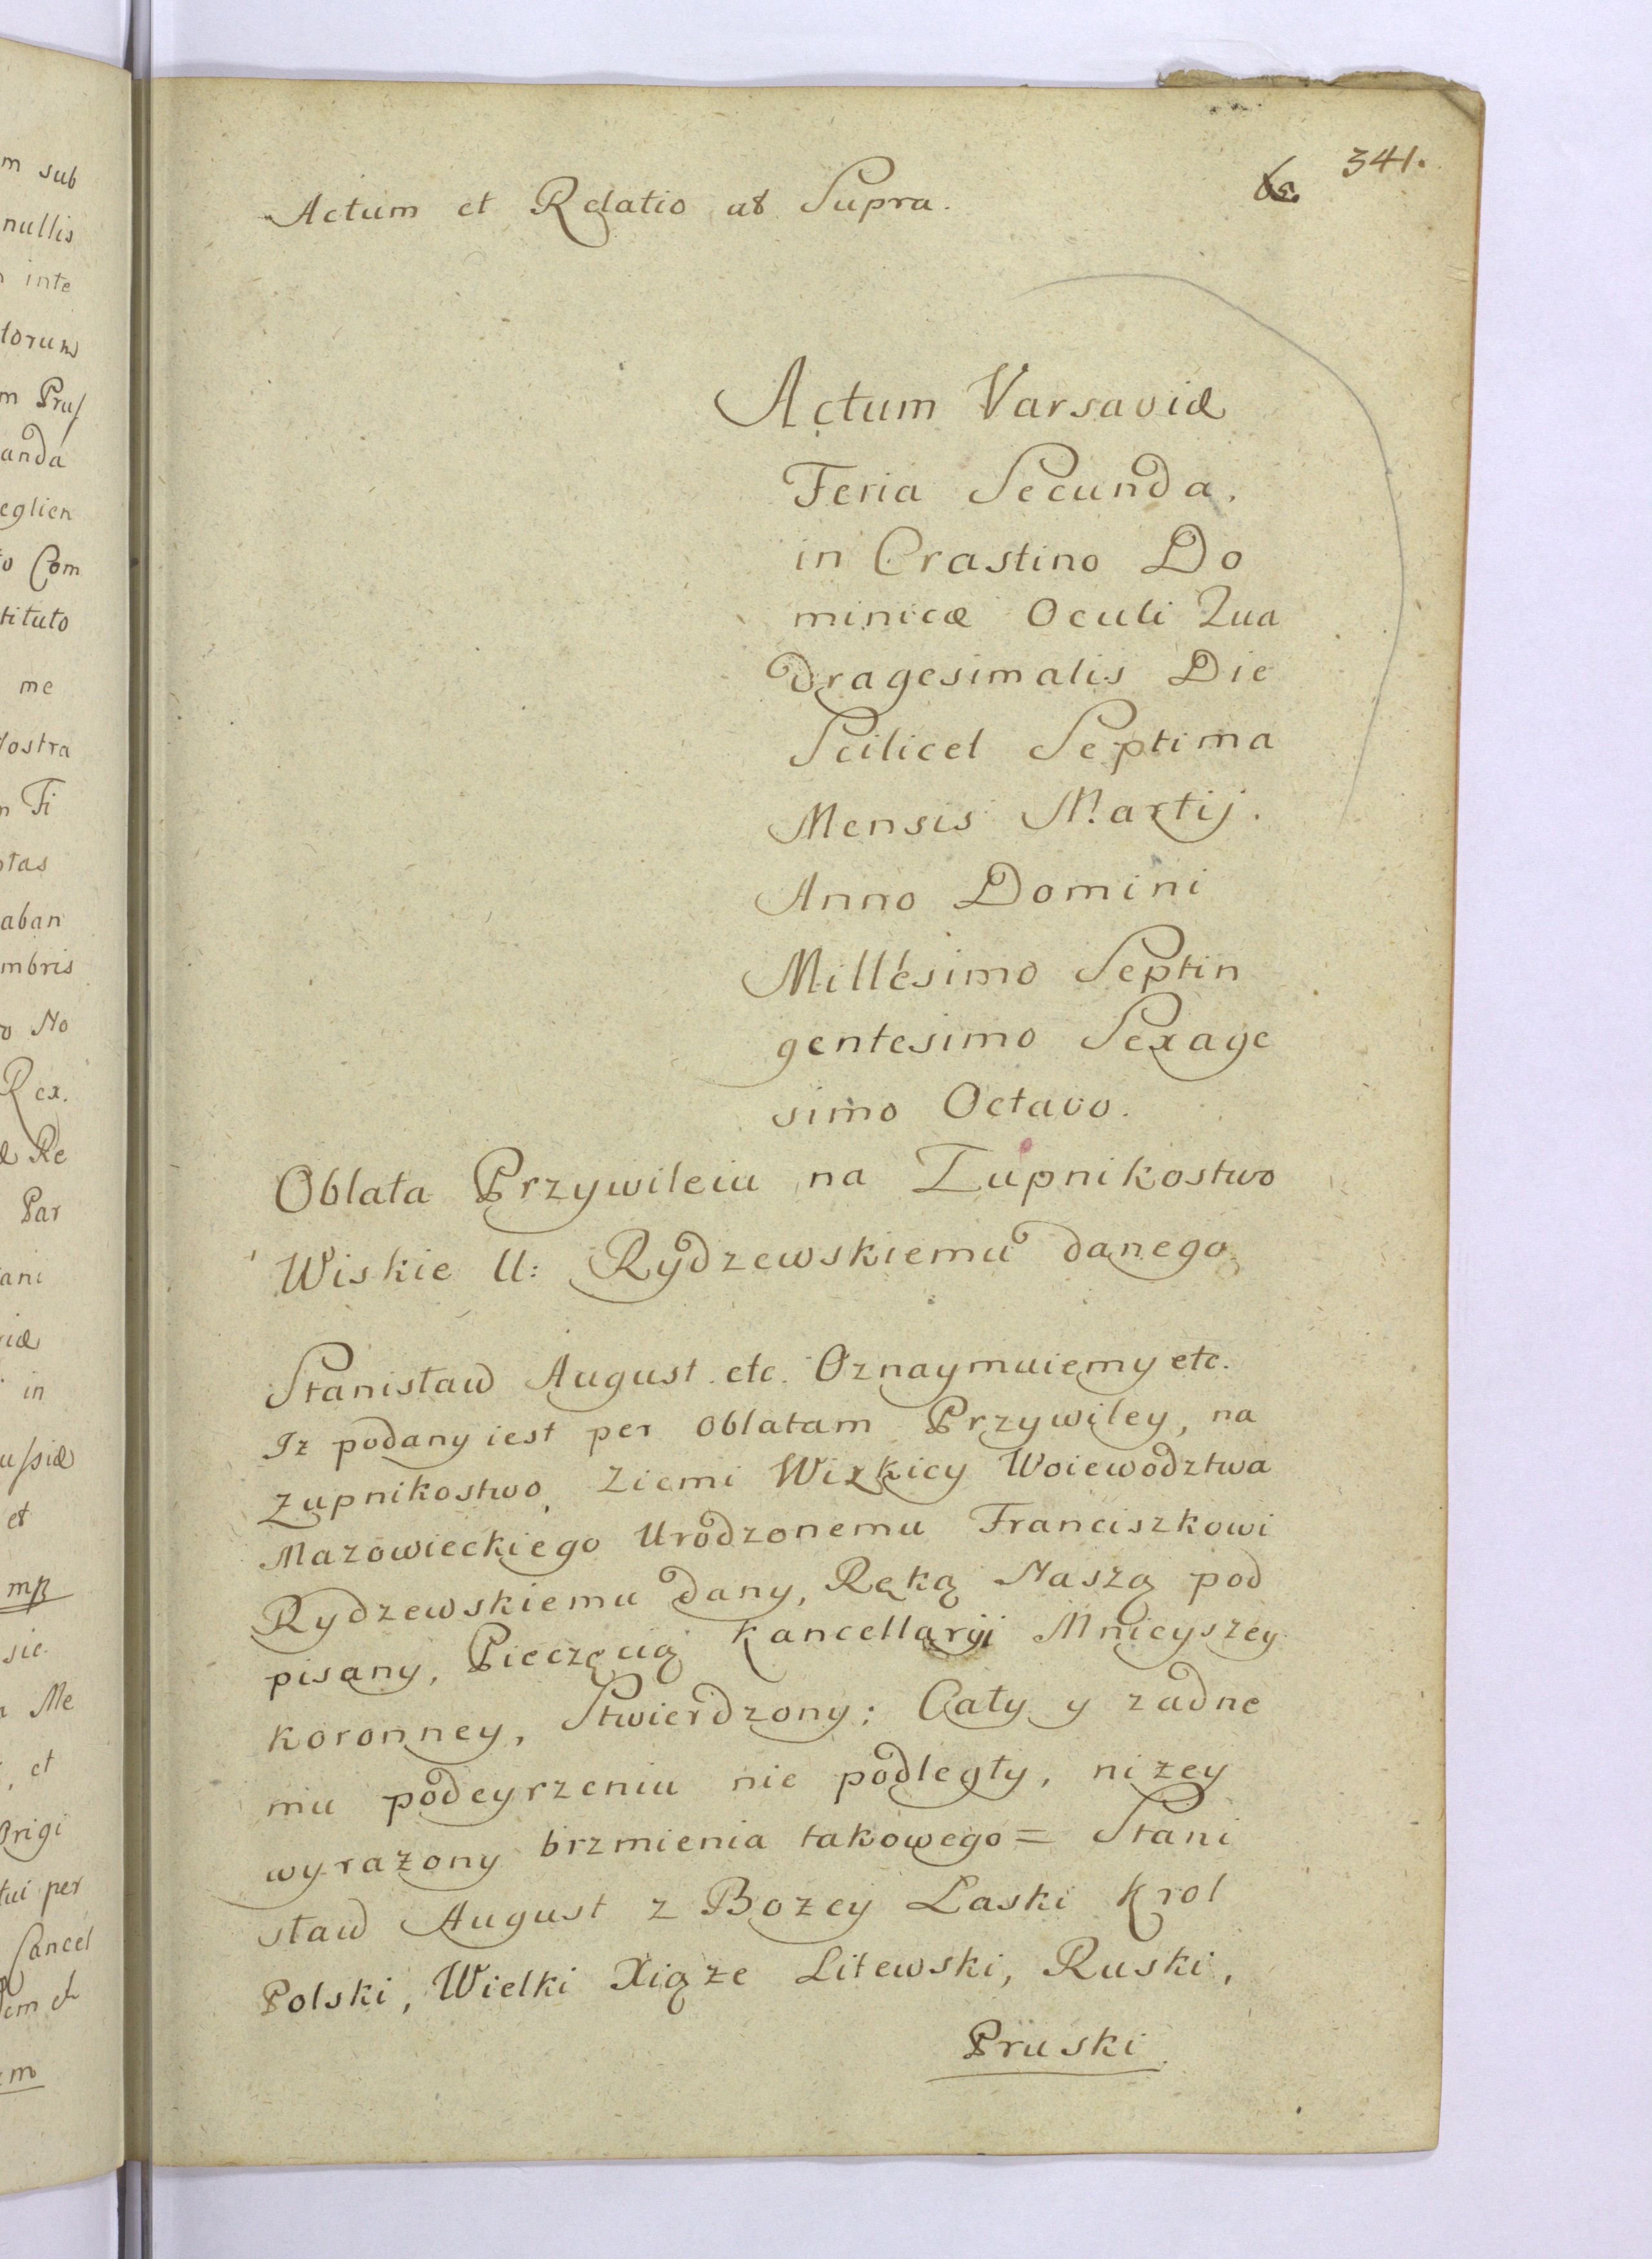 341.
Actum et Relatio ut Supra.
Actum Varsaviæ
Feria Secunda.
in Crastino Do
minicæ Oculi Qua
dragesimalis Die
Scilicet Septima
Mensis Martij.
Anno Domini
Millesimo Septin
gentesimo Sexage
simo Octavo.
Oblata Przywileiu na Zupnikostwo
Wiskie U: Rydzewskiemu danego
Stanisław August etc. Oznaymuiemy etc.
Iż podany iest per oblatam Przywiley, na
zupnikostwo Ziemi Wizkiey Woiewodztwa
Mazowieckiego Urodzonemu Franciszkowi
Rydzewskiemu dany, Ręką Naszą pod
pisany, Pieczęcią Kancellaryi Mnieyszey
koronney, Stwierdzony; Cały y zadne
mu podeyrzeniu nie podległy, niżey
wyrażony brzmienia takowego = Stani
sław August z Bożey Łaski Krol
Polski, Wielki Xiąże Litewski, Ruski,
Pruski
m sub
nullis
inte
torum
m Prus
anda
eglien
o Com
tituto
me
Nostra
n Fi
ptas
aban
mbris
o No
Rex.
æ Re
Par
ani
riæ
in
ussiæ
et
mp
sie.
a Me
, et
Origi
tui per
Cancel
em et
mo